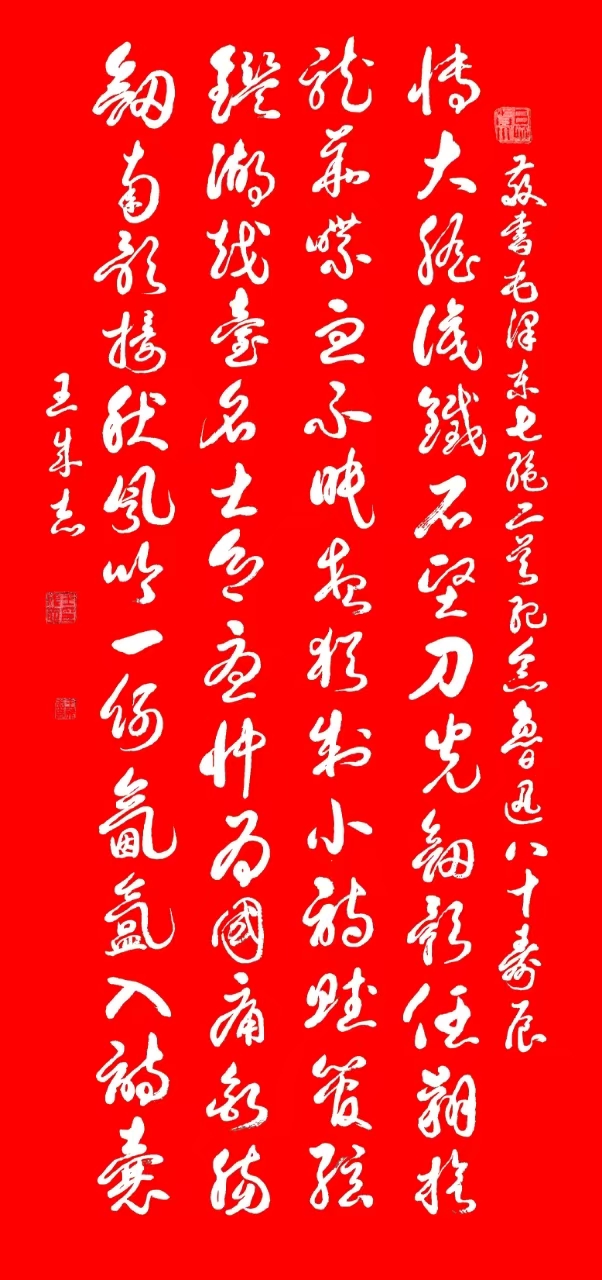 敬書毛澤東七絕二首紀念魯迅八十壽辰
博大膽識鐵石堅刀光劍影任翔旋
龍華喋血不眠夜猶制小詩賦管弦
鑑湖越臺名士鄉憂忡為國痛斷腸
劍南歌接秋風吟一例氤氳入詩囊
王成志